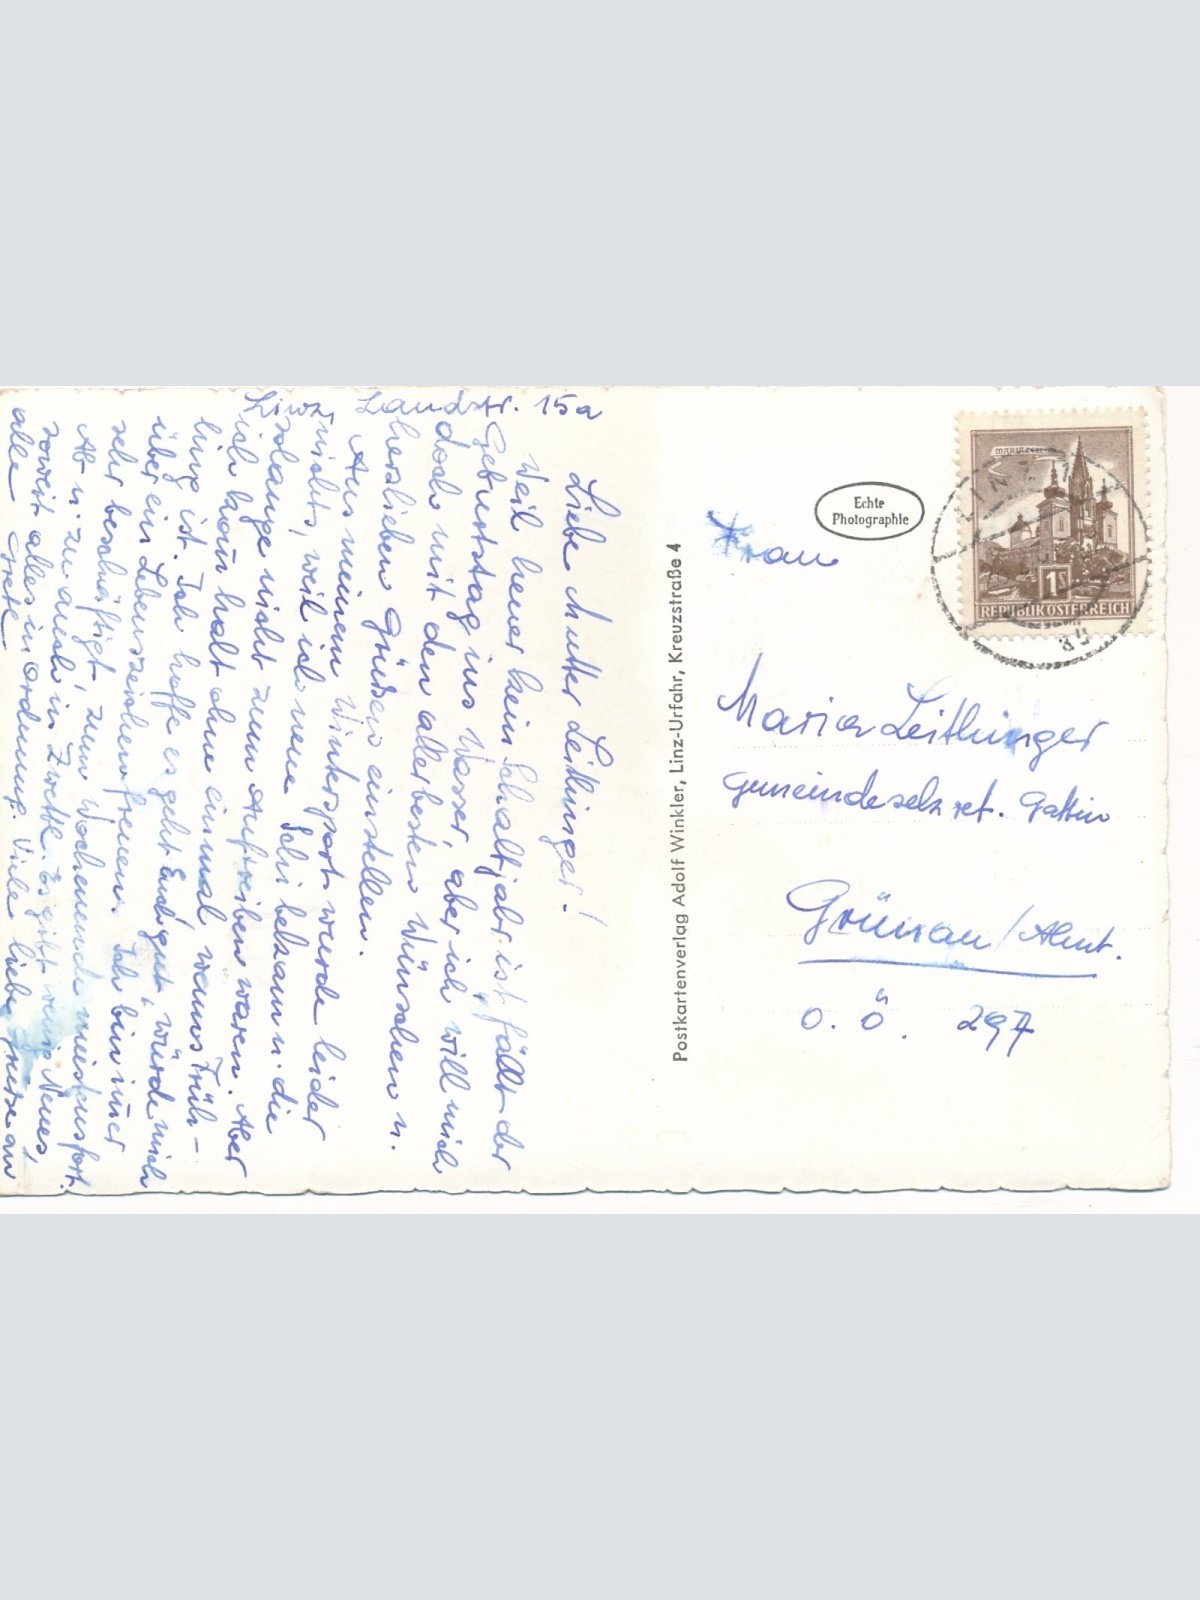 Landstr. 15a
Linz
Liebe Mutter Leitlinger!
Weil heuer kein Schaltjahr ist fällt der
Geburtstag ins Wasser, aber ich will mich
doch mit den allerbesten Wünschen u.
herzlieben Grüßen einstellen.
Aus meinem Wintersport wurde leider
nichts, weil ich neue Schi bekam u. die
solange nicht zum Auftreiben waren. Aber
ich kann halt ohne einmal wanns Früh-
ling ist. Ich hoffe es geht Euch gut, würde mich
über ein Lebenszeichen freuen. Ich bin immer
sehr beschäftigt, zum Wochenende meistens fort.
Ab u. zu auch in Zwettl. Es gibt wenig Neues,
soweit alles in Ordnung. Viele liebe Grüße an
alle Grete
Postkartenverlag Adolf Winkler, Linz-Urfahr, Kreuzstraße 4
Echte
Photographie
MARIAZELL
1S
REPUBLIK ÖSTERREICH
LINZ
Frau
Maria Leitlinger
Gemeindesekret. Gattin
Grünau / Almt.
O. Ö. 297